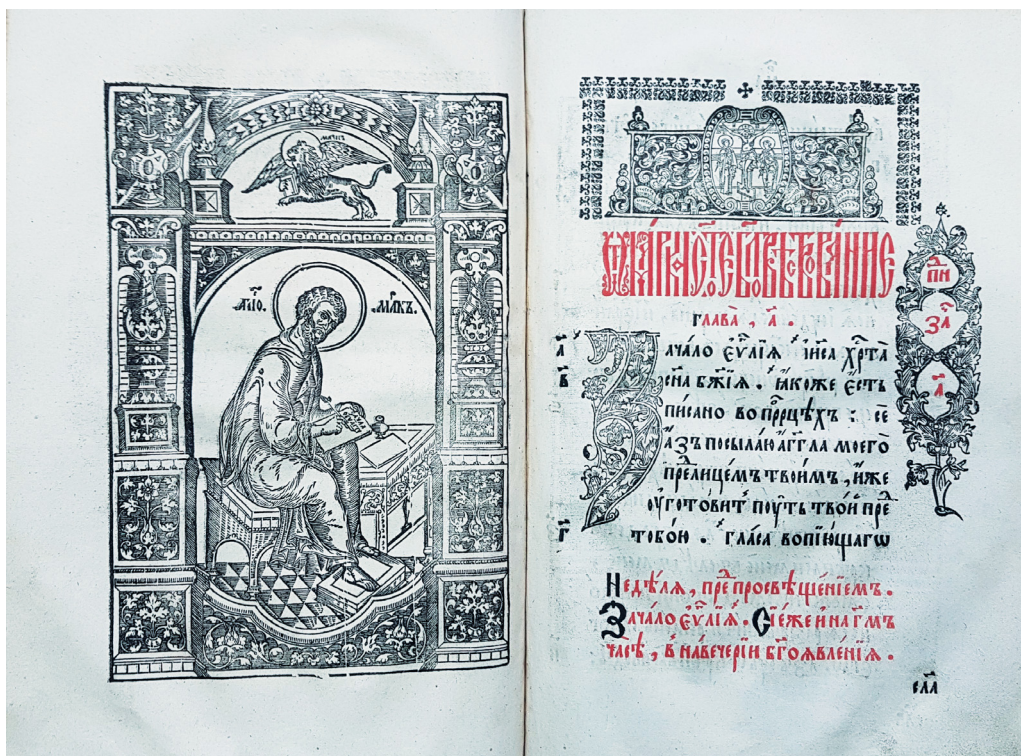 АПО. МАРКЪ.
ГЛАВА̀, А҃.
А҃ ачало є҆ѵⷢ҇лїѧ і҆и҃са хрⷭ҇та̀
В҃ сн҃а бж҃їѧ. ꙗ҆́коже є҆сть
писано во прⷪ҇рцѣхъ : сѐ
а҆́зъ посылаю а҆́гг҃ла моегѡ̀
преⷣ лицемъ твоимъ, и҆́же
оуготовитъ поуть твой преⷣ
Г҃ тобо́ю. гла́са вопїющагѡ
Недѣ́лѧ, преⷣ просвѣще́нїемъ.
Зача́ло є҆ѵⷢ҇лїѧ. Сїе́же и҆ на г҃мъ
часѣ̀, в навечерїи бг҃оѧвле́нїѧ.
ПИ
ЗАⷱ҇
А҃
СЛА